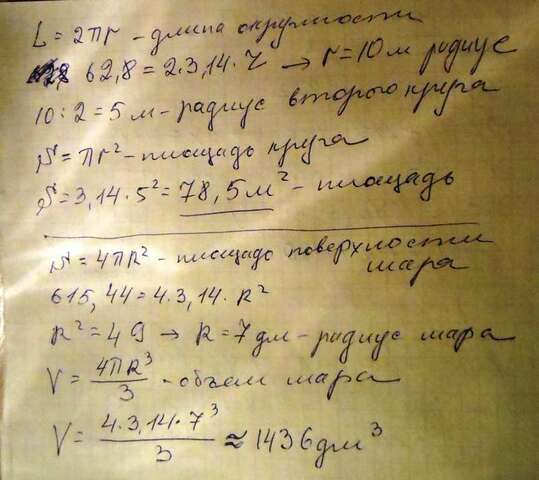 L = 2πr - длина окружности
62,8 = 2·3,14·r → r = 10м радиус
10 : 2 = 5 м - радиус второго круга
S = πr² - площадь круга
S = 3,14·5² = 78,5 м² - площадь
S = 4πR² - площадь поверхности
шара
615,44 = 4·3,14·R²
R² = 49 → R = 7 дм - радиус шара
V = 4πR³/3 - объем шара
V = 4·3,14·7³/3 ≈ 1436 дм³